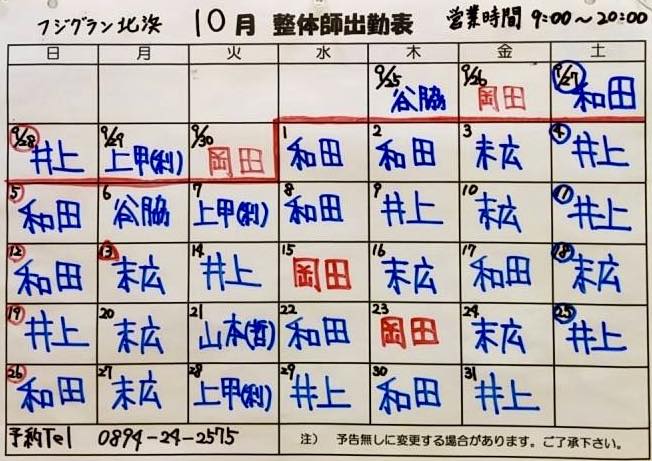 フジグラン北浜 10月 整体師出勤表 営業時間 9:00〜20:00
日 月 火 水 木 金 土
9/25 谷脇 9/26 岡田 9/27 和田
9/28 井上 9/29 上甲(利) 9/30 岡田 1 和田 2 和田 3 末広 4 井上
5 和田 6 谷脇 7 上甲(利) 8 和田 9 井上 10 末広 11 井上
12 和田 13 末広 14 井上 15 岡田 16 末広 17 和田 18 末広
19 井上 20 末広 21 山本(哲) 22 和田 23 岡田 24 末広 25 井上
26 和田 27 末広 28 上甲(利) 29 井上 30 和田 31 井上
予約Tel 0894-24-2575 注） 予告無しに変更する場合があります。ご了承下さい。